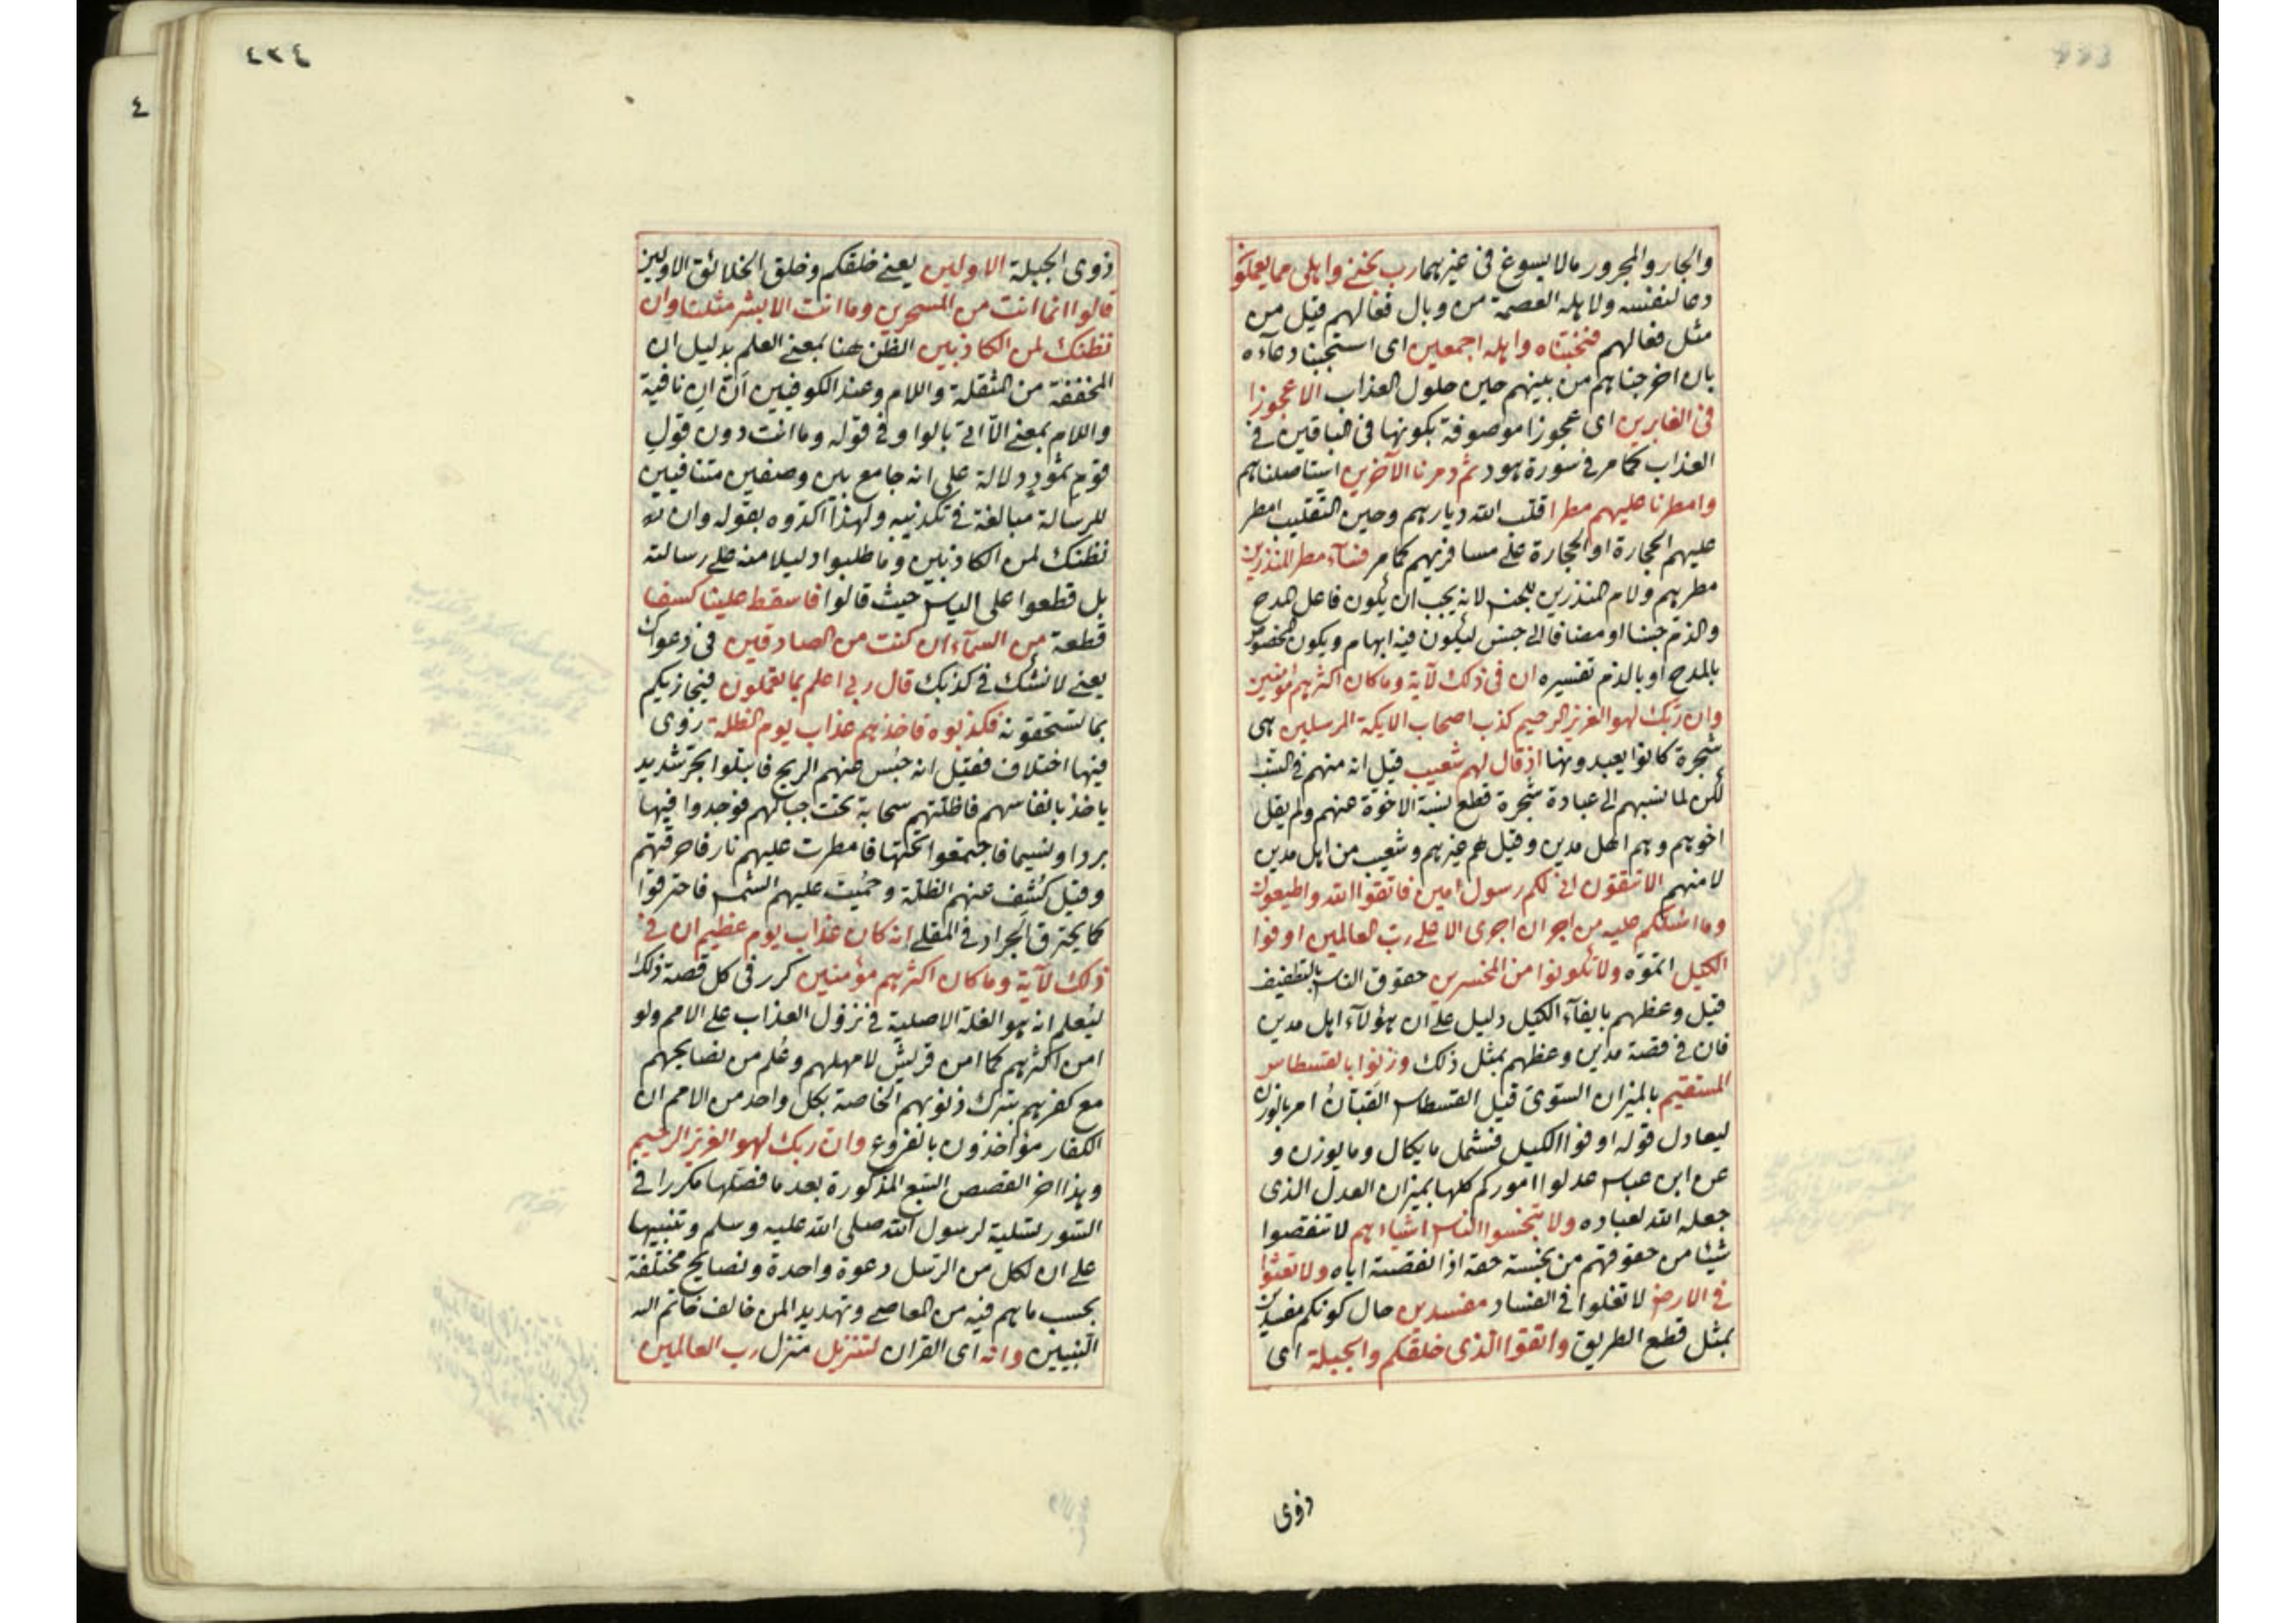 والجار والمجرور مالا يسوغ فى غيرهما رب نجنى واهلى مما يعملون
دعا لنفسه ولاهله العصمة من وبال فعالهم قيل من
مثل فعالهم فنجيناه واهله اجمعين اى استجبنا دعآءه
بان اخرجناهم من بينهم حين حلول العذاب الا عجوزا
فى الغابرين اى عجوزا موصوفة بكونها فى الباقين فى
العذاب كما مر فى سورة هود ثم دمرنا الآخرين استاصلناهم
وامطرنا عليهم مطرا قلب الله ديارهم وحين التقليب امطر
عليهم الحجارة او الحجارة على مسافريهم كما مر فسآء مطر المنذرين
مطرهم ولام المنذرين للجنس لانه يجب ان يكون فاعل المدح
والذم جنسا او مضافا الى جنس ليكون فيه ابهام ويكون المخصوص
بالمدح او بالذم تفسيره ان فى ذلك لآية وما كان اكثرهم مؤمنين
وان ربك لهو العزيز الرحيم كذب اصحاب الايكة المرسلين هى
شجرة كانوا يعبدونها اذ قال لهم شعيب قيل انه منهم فى النسب
لكن لما نسبهم الى عبادة شجرة قطع نسبة الاخوة عنهم ولم يقل
اخوهم وهم اهل مدين وقيل هم غيرهم وشعيب من اهل مدين
لا منهم الا تتقون انى لكم رسول امين فاتقوا الله واطيعون
وما اسئلكم عليه من اجر ان اجرى الا على رب العالمين اوفوا
الكيل اتموّه ولا تكونوا من المخسرين حقوق الناس بالتطفيف
قيل وعظهم بايفآء الكيل دليل على ان هؤلآء اهل مدين
فان فى قصة مدين وعظهم بمثل ذلك وزنوا بالقسطاس
المستقيم بالميزان السوى قيل القسطاس القبّان امر بالوزن
ليعادل قوله اوفوا الكيل فشمل ما يكال وما يوزن و
عن ابن عباس عدلوا اموركم كلها بميزان العدل الذى
جعله الله لعباده ولا تبخسوا الناس اشياءهم لا تنقصوا
شيئا من حقوقهم من بخسته حقه اذا نقصته اياه ولا تعثوا
فى الارض لا تغلوا فى الفساد مفسدين حال كونكم مفسدين
بمثل قطع الطريق واتقوا الذى خلقكم والجبلة اى
ذوى
٤٢٤
ذوى الجبلة الاولين يعنى خلقكم وخلق الخلائق الاولين
قالوا انما انت من المسحرين وما انت الا بشر مثلنا وان
نظنك لمن الكاذبين الظن هنا بمعنى العلم بدليل ان
المخففة من المثقلة واللام وعند الكوفيين ان ان نافية
واللام بمعنى الا اتى بالواو فى قوله وما انت دون قول
قوم ثمود دلالة على انه جامع بين وصفين متنافيين
للرسالة مبالغة فى تكذيبه ولهذا اكدوه بقوله وان
نظنك لمن الكاذبين وما طلبوا دليلا منه على رسالته
بل قطعوا على الياس حيث قالوا فاسقط علينا كسفا
قطعة من السمآء ان كنت من الصادقين فى دعواك
يعنى لا نشك فى كذبك قال ربى اعلم بما تعملون فيجازيكم
بما تستحقونه فكذبوه فاخذهم عذاب يوم الظلة روى
فيها اختلاف فقيل انه حبس عنهم الريح فابتلوا بحر شديد
ياخذ بانفاسهم فاظلتهم سحابة تحت جبالهم فوجدوا فيها
بردا ونسيما فاجتمعوا تحتها فامطرت عليهم نار فاحرقتهم
وقيل كُشِف عنهم الظلة وحميت عليهم الشمس فاحترقوا
كما يحترق الجراد فى المقلى انه كان عذاب يوم عظيم ان فى
ذلك لآية وما كان اكثرهم مؤمنين كرر فى كل قصة ذلك
ليُعلم انه هو العلة الاصلية فى نزول العذاب على الامم ولو
امن اكثرهم كما امن قريش لامهلهم وعُلم من نصايحهم
مع كفرهم بترك ذنوبهم الخاصة بكل واحد من الامم ان
الكفار مؤاخذون بالفروع وان ربك لهو العزيز الرحيم
وهذا اخر القصص السبع المذكورة بعد ما فصّلها مكررا فى
السور تسلية لرسول الله صلى الله عليه وسلم وتنبيها
على ان لكل من الرسل دعوة واحدة ونصايح مختلفة
بحسب ما هم فيه من المعاصى وتهديدا لمن خالف خاتم
النبيين وانه اى القران لتنزيل منزل رب العالمين